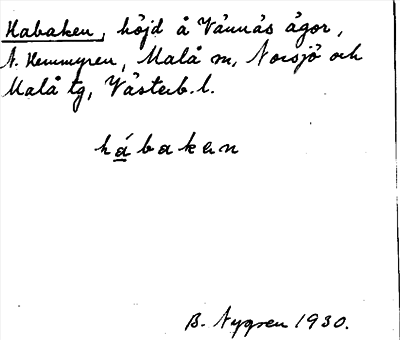 Habaken, höjd å Vännäs ägor,
N. Hemmyren, Malå sn, Norsjö och
Malå tg, Västerb. l.
hábaken
B. Nygren 1930.